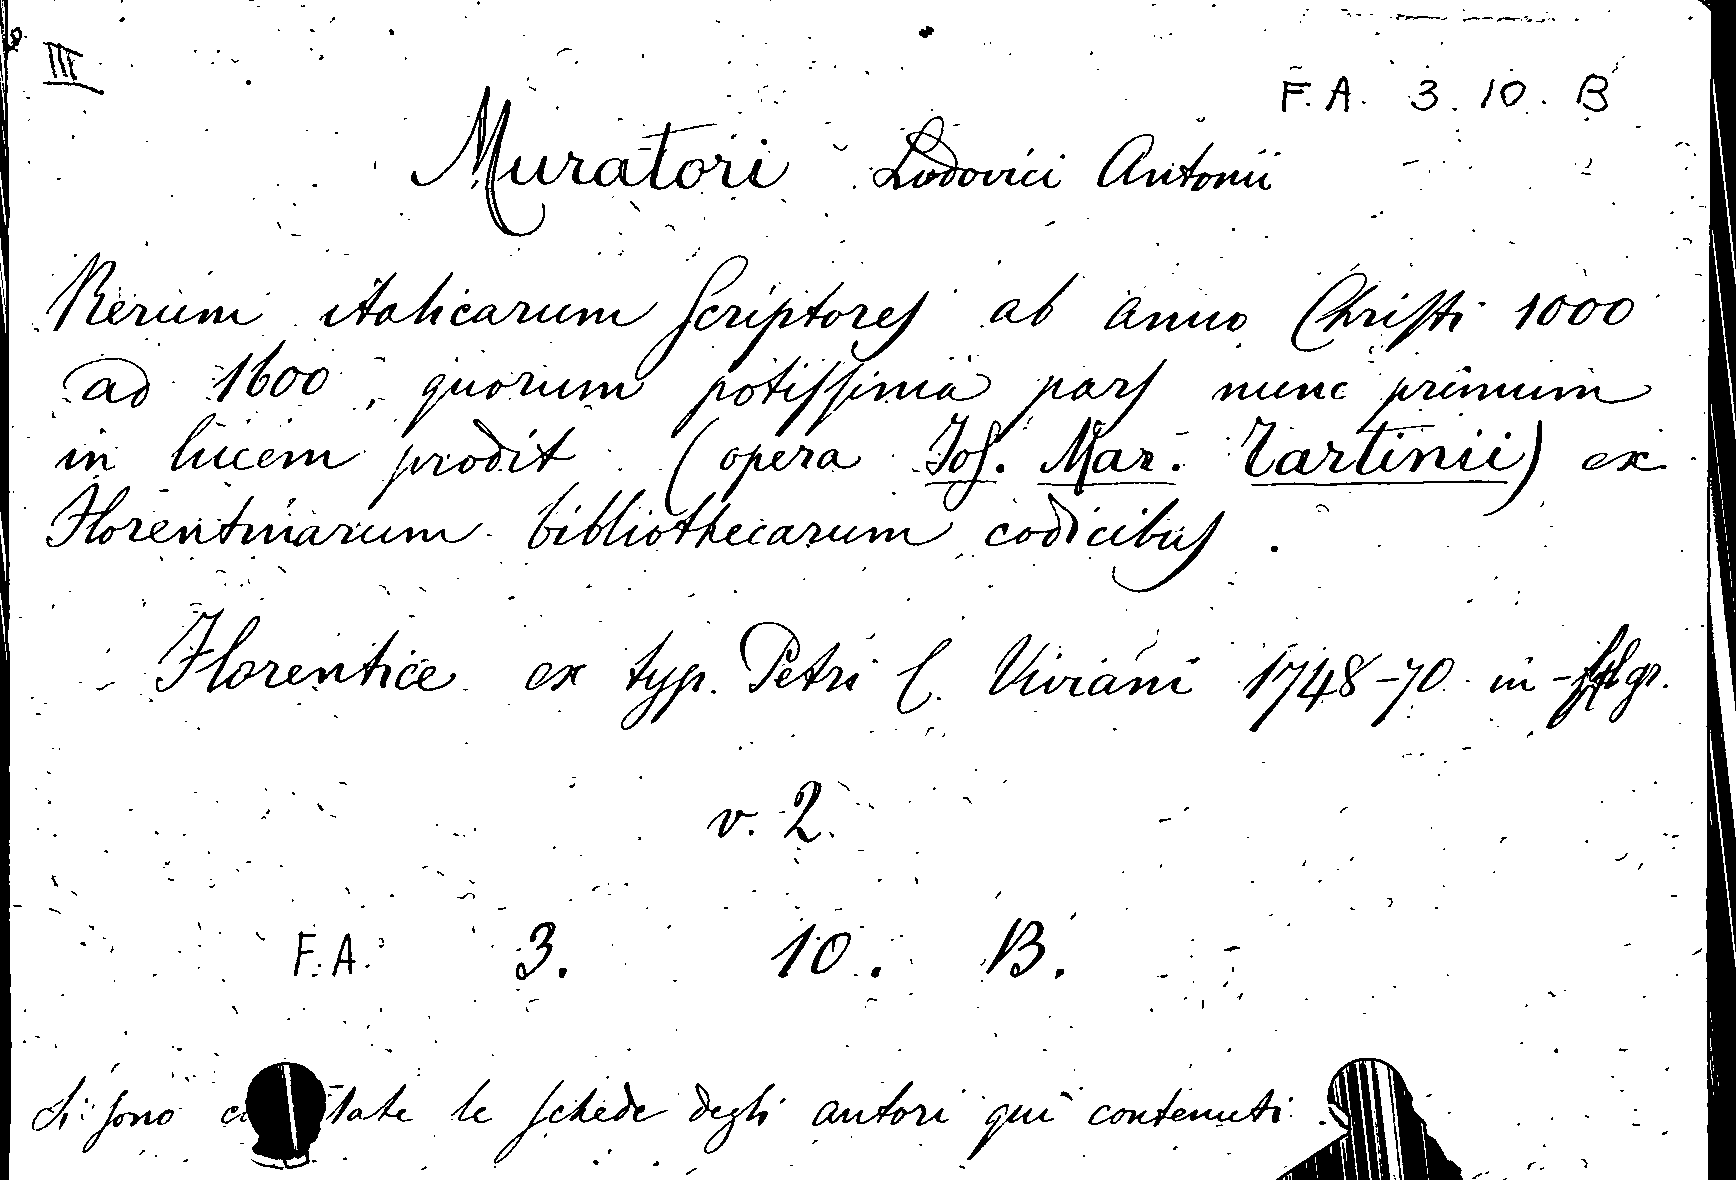 III
F. A. 3. 10. B
Muratori Lodovici Antonii
Rerum italicarum Scriptores ab anno Christi 1000
ad 1600, quorum potissima pars nunc primum
in lucem prodit (opera Jos. Mar. Tartinii) ex
Florentinarum bibliothecarum codicibus.
Florentiæ ex typ. Petri C. Viviani 1748-70 in-fol gr.
v. 2.
F. A. 3. 10. B.
Si sono le schede degli autori qui contenuti